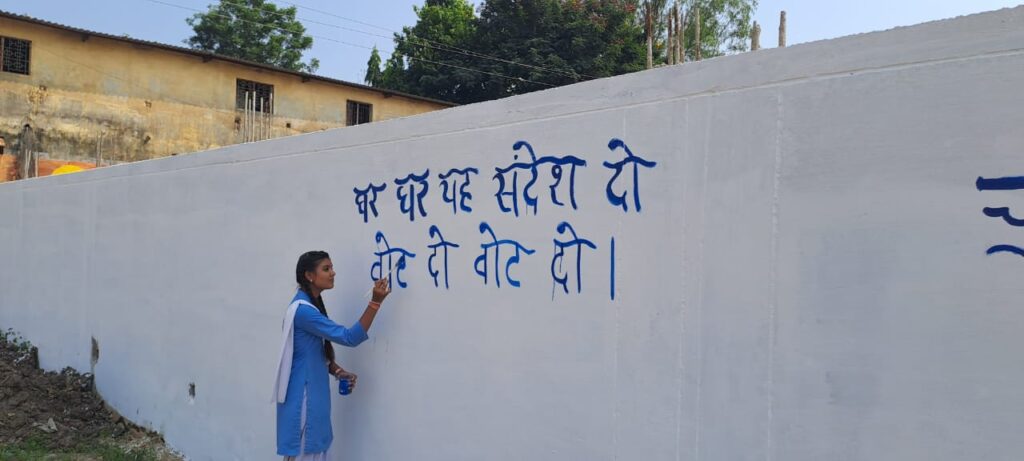 घर घर यह संदेश दो
वोट दो वोट दो।